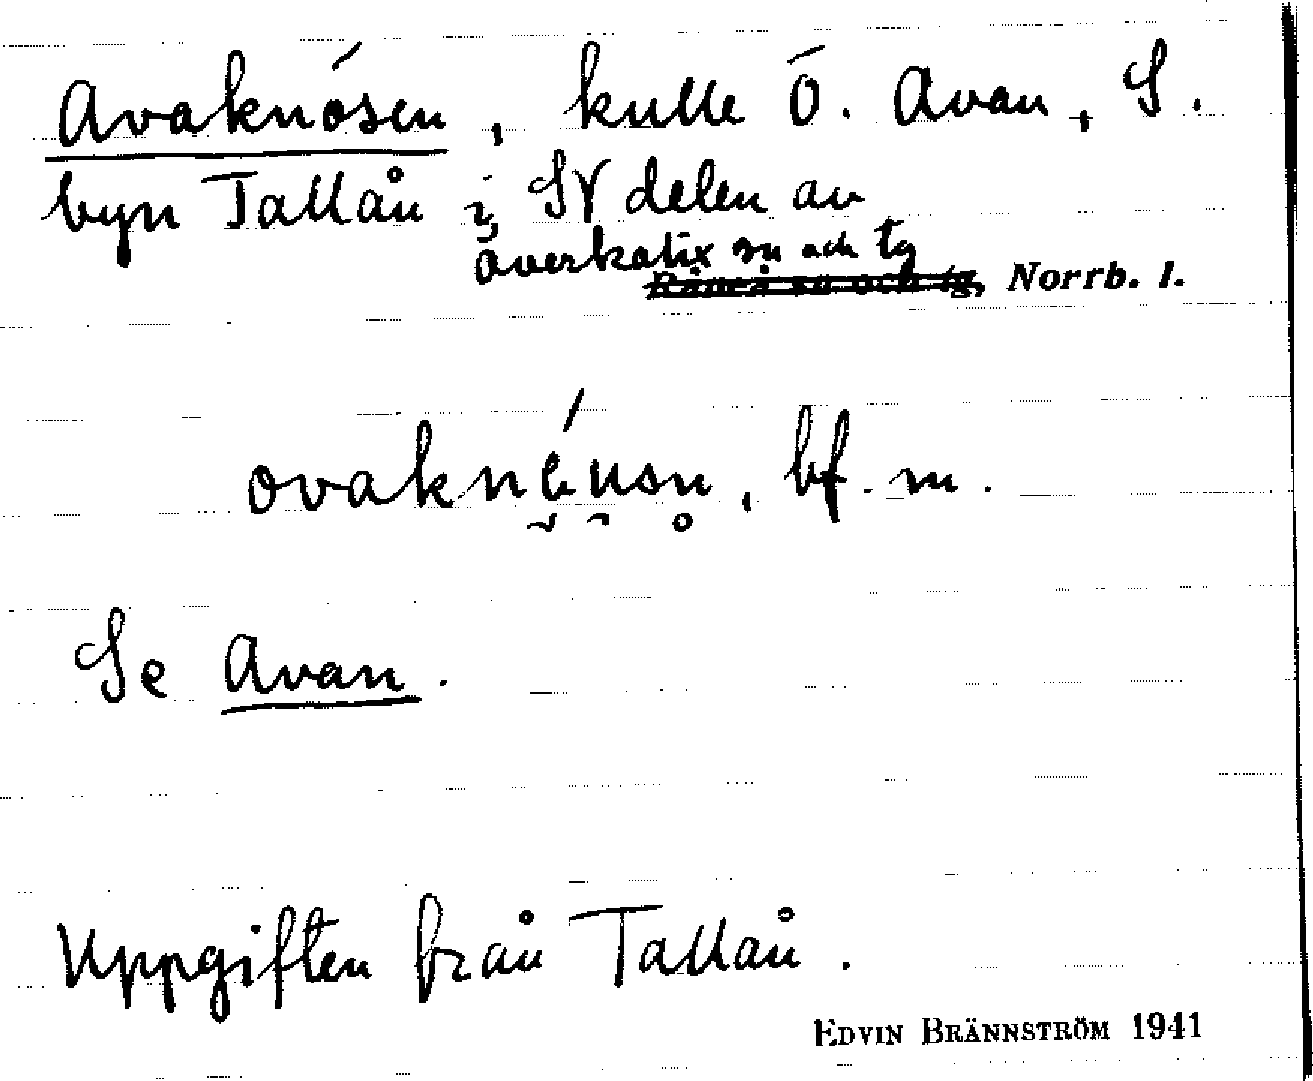 Avaknösen, kulle Ö. Avan, S.
byn Tallån i SV delen av
Överkalix sn och tg
Råneå sn och tg, Norrb. l.
bf. m.
Se Avan.
Uppgiften från Tallån.
EDVIN BRÄNNSTRÖM 1941